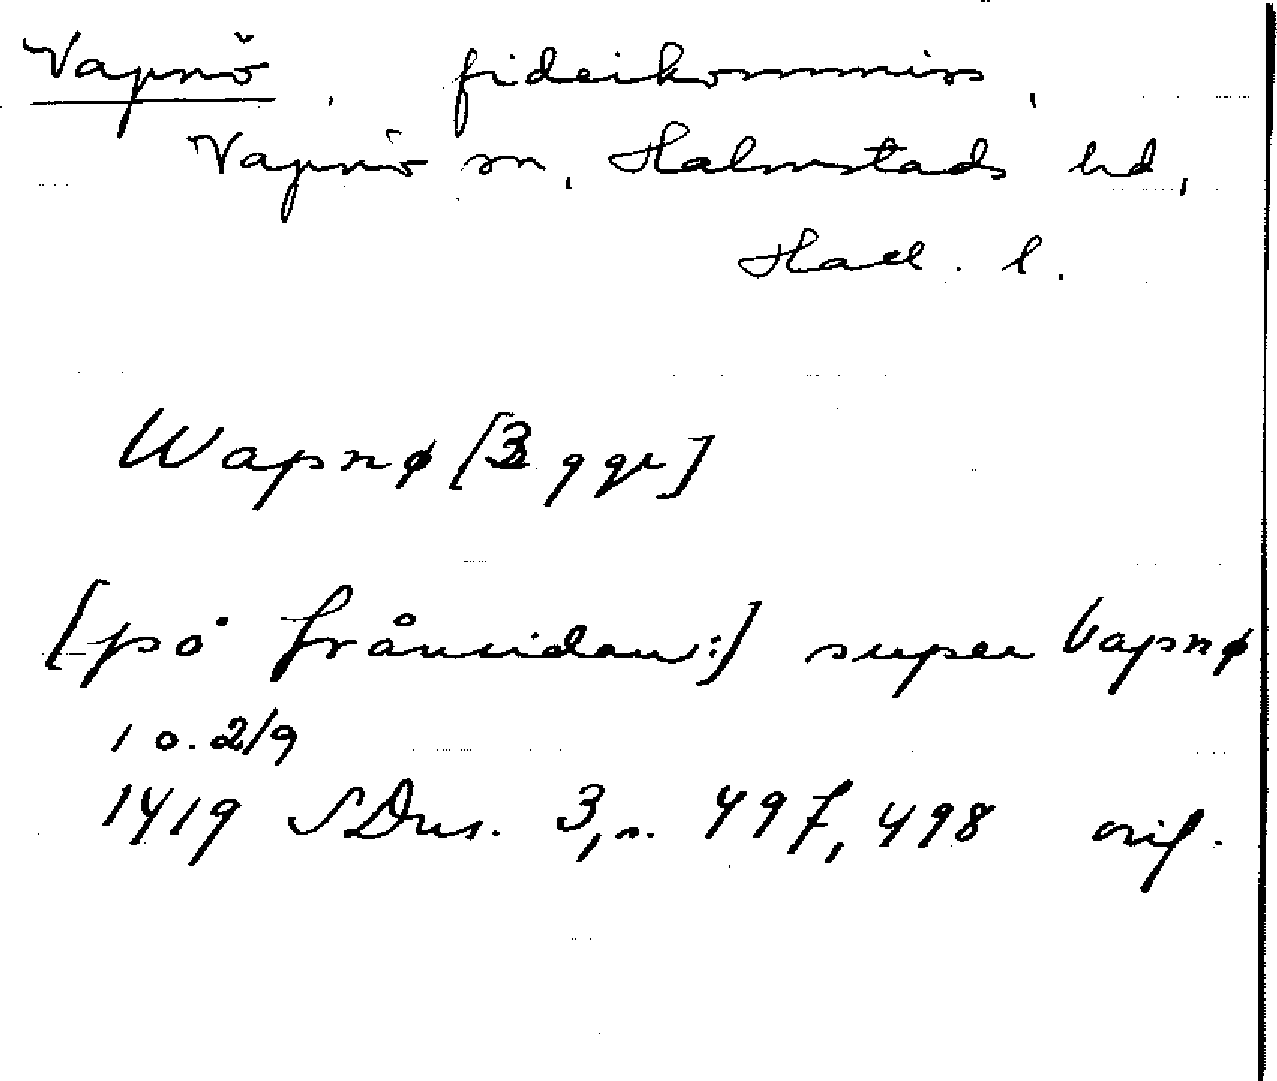 Vapnö, fideikommiss,
Vapnö sn, Halmstads hd,
Hall. l.
Wapnø [3 ggr]
[på frånsidan:] super Vapnø
1 o. 2/9
1419 SDns. 3, s. 497, 498 orig.